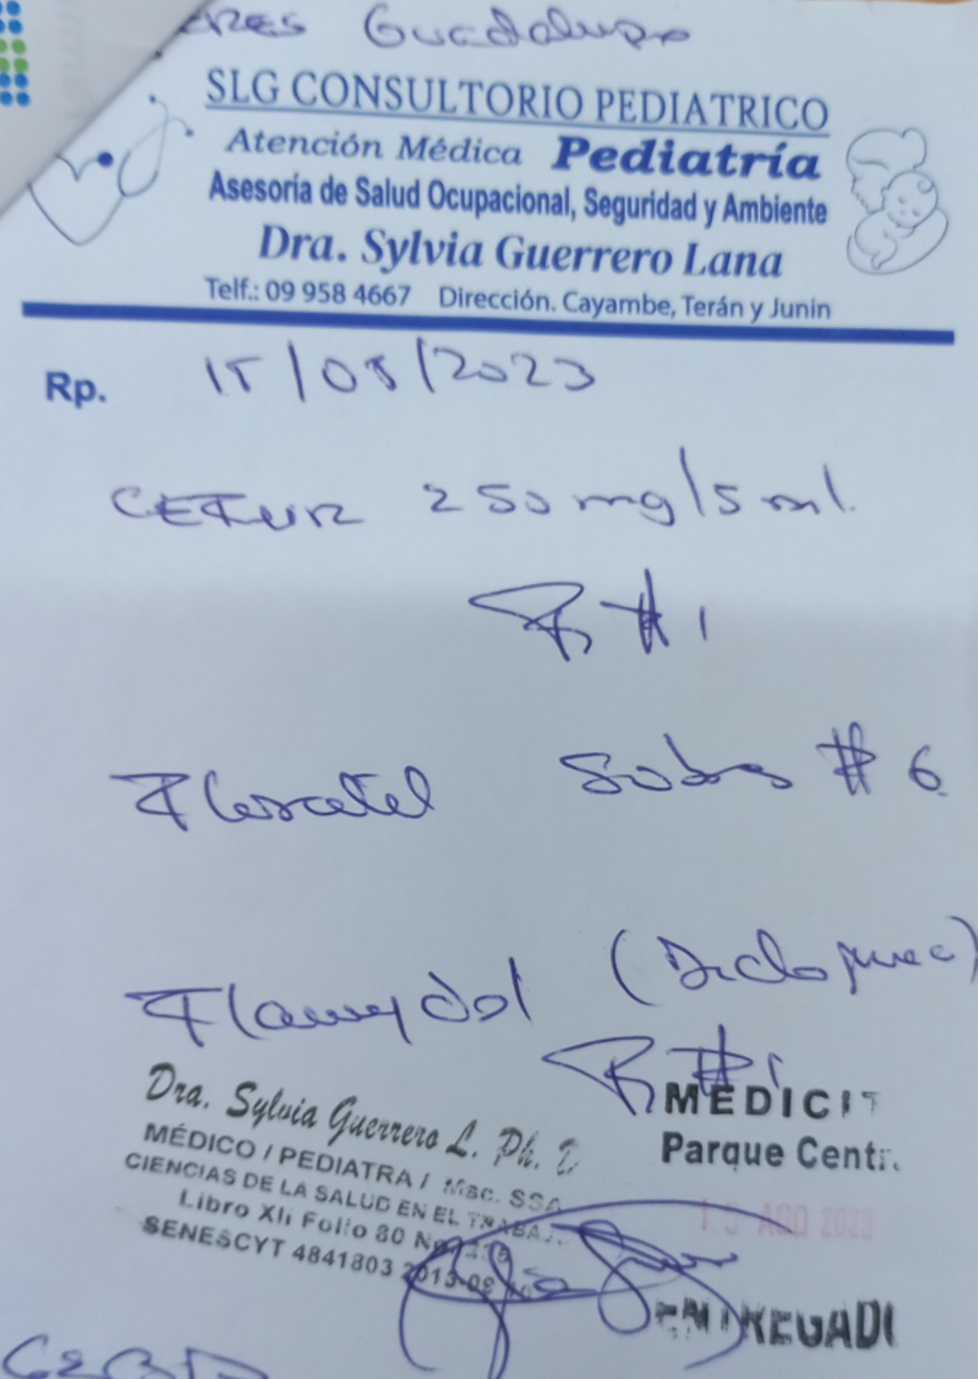 Guadalupe
SLG CONSULTORIO PEDIATRICO
Atención Médica Pediatría
Asesoría de Salud Ocupacional, Seguridad y Ambiente
Dra. Sylvia Guerrero Lana
Telf.: 09 958 4667 Dirección. Cayambe, Terán y Junin
Rp. 15/08/2023
CEFUR 250mg/5ml.
#1
Floratil Sobres #6
Flamydol (Diclofenac)
#1
Dra. Sylvia Guerrero L. Ph. D
MÉDICO / PEDIATRA / Msc. SSA
CIENCIAS DE LA SALUD EN EL TRABAJ
Libro XII Folio 80
SENESCYT 4841803
MEDICIT
Parque Centr.
15 AGO 2023
ENTREGADO